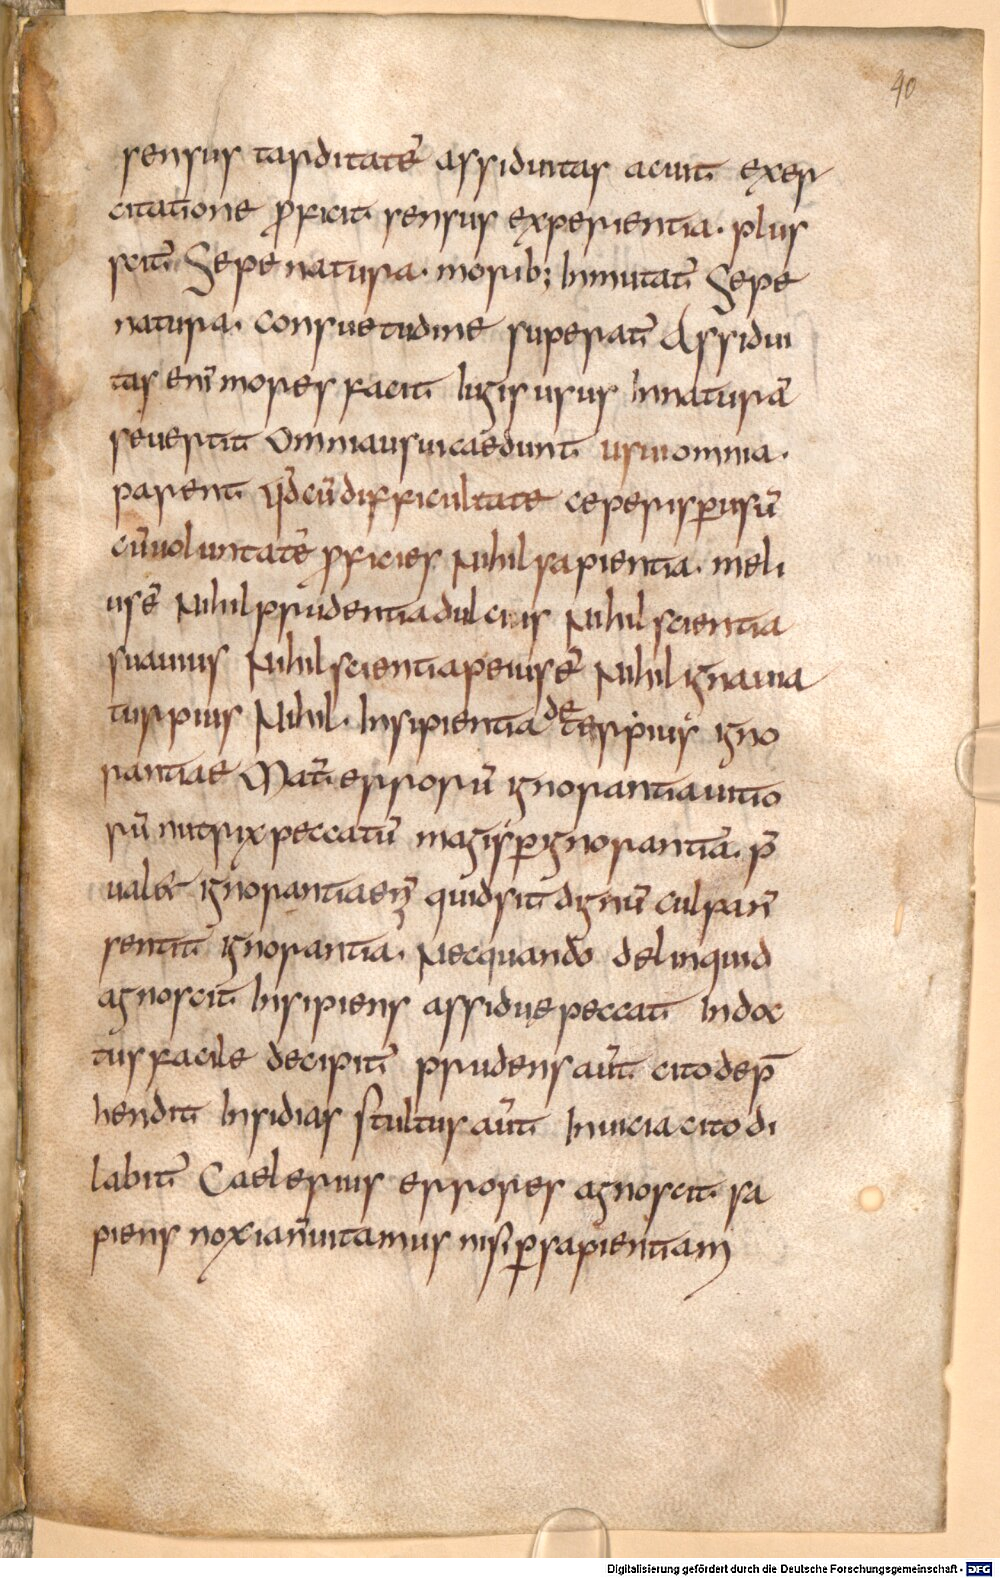 40
sensus tarditatē assiduitas acuit exer
citatione ꝓficit sensus experientia· plus
scit Sepe natura· morib; Inmutat̄ Sepe
natura· consuetudine superat̄ Assidui
tas eni̅ mores facit ligis usus Innaturā
seuertit Omnia usui caedunt usui omnia·
parent qd̄ cū difficultate ceperis ꝑ usū
cū uoluntatē ꝓficies Nihil sapientia· meli
us ē Nihil prudentia dulcius Nihil scientia
suauius Nihil scientia peius ē Nihil ignauia
turpius Nihil· Insipientia deterius igno
rantiae Mat̄ errorū ignorantia uitio
rū nutrix peccatū magis ꝑ ignorantiā· p̄
ualet ignorantia enī quid sit dignū culpa n̄
sentit ignorantia· Nec quando delinquid
agnoscit Insipiens assidue peccat Indoc
tus facile decipit̄ prudens aūt cito dep̄
hendit Insidias stultus aūt In uicia cito di
labit̄ Caelerius errores agnoscit sa
piens noxia n̄ uitamus nisi ꝑ sapientiam
Digitalisierung gefördert durch die Deutsche Forschungsgemeinschaft - DFG